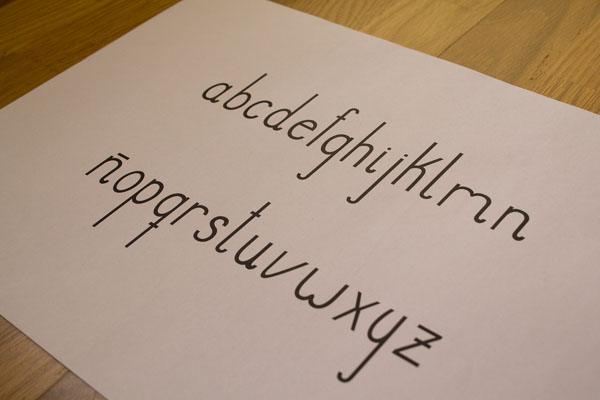 abcdefghijklmn
ñopqrstuvwxyz